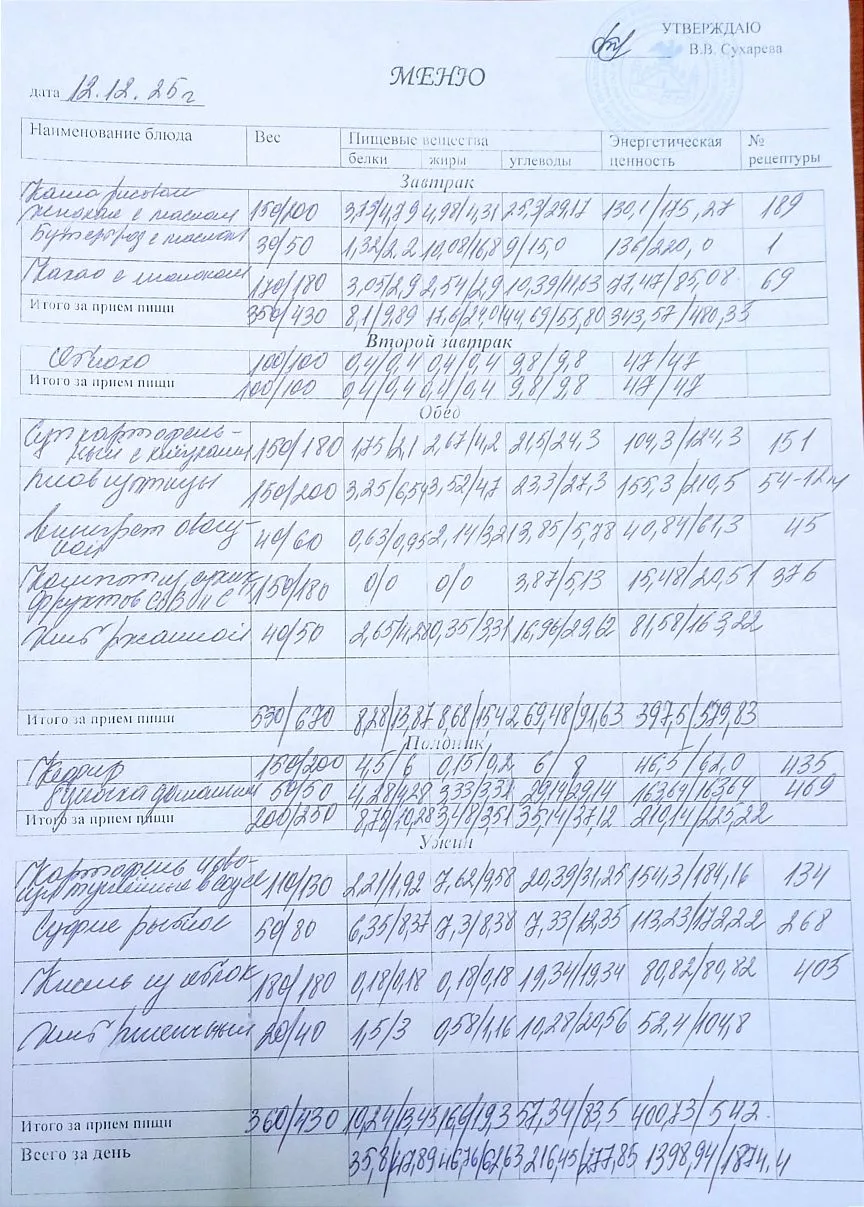 УТВЕРЖДАЮ
В.В. Сухарева
МЕНЮ
дата 12.12.25г
Наименование блюда Вес Пищевые вещества Энергетическая ценность № рецептуры
белки жиры углеводы
Завтрак
Каша рисовая
молочная с маслом 150/200 3,75/4,79 4,98/4,31 25,3/29,17 130,1/175,27 189
Бутерброд с маслом 30/50 1,32/2,2 10,08/16,8 9/15,0 136/220,0 1
Какао с молоком 170/180 3,05/2,9 2,54/2,9 10,39/11,63 77,47/85,08 69
Итого за прием пищи 350/430 8,1/9,89 17,6/24,01 44,69/55,80 343,57/480,35
Второй завтрак
Яблоко 100/100 0,4/0,4 0,4/0,4 9,8/9,8 47/47
Итого за прием пищи 100/100 0,4/0,4 0,4/0,4 9,8/9,8 47/47
Обед
Суп картофель-
ный с клецками 150/180 1,75/2,1 2,67/4,2 21,5/24,3 104,3/124,3 151
Плов из птицы 150/200 3,25/6,54 3,52/4,7 23,3/27,3 155,3/210,5 54-12м
Винегрет овощ-
ной 40/60 0,63/0,95 2,14/3,21 3,85/5,78 40,84/61,3 45
Компот из сухих
фруктов С-Вит С 150/180 0/0 0/0 3,87/5,13 15,48/20,51 376
Хлеб ржаной 40/50 2,65/4,28 0,35/3,31 16,96/29,62 81,58/163,22
Итого за прием пищи 530/670 8,28/13,87 8,68/15,42 69,48/91,63 397,5/579,83
Полдник
Кефир 150/200 4,5/6 0,15/0,2 6/8 46,5/62,0 435
Булочка домашняя 50/50 4,28/4,28 3,33/3,31 29,14/29,14 163,64/163,64 469
Итого за прием пищи 200/250 8,78/10,28 3,48/3,51 35,14/37,12 210,14/225,22
Ужин
Картофель и ово-
щи тушенные в соусе 110/130 2,21/1,92 7,62/9,58 20,39/31,25 154,3/184,16 134
Суфле рыбное 50/80 6,35/8,37 7,3/8,38 7,33/12,35 113,23/172,22 268
Кисель из яблок 180/180 0,18/0,18 0,18/0,18 19,34/19,34 80,82/80,82 405
Хлеб пшеничный 20/40 1,5/3 0,58/1,16 10,28/20,56 52,4/104,8
Итого за прием пищи 360/430 10,24/13,43 16,6/19,3 57,34/83,5 400,73/542
Всего за день 35,8/47,89 46,76/62,63 216,45/277,85 1398,94/1874,4